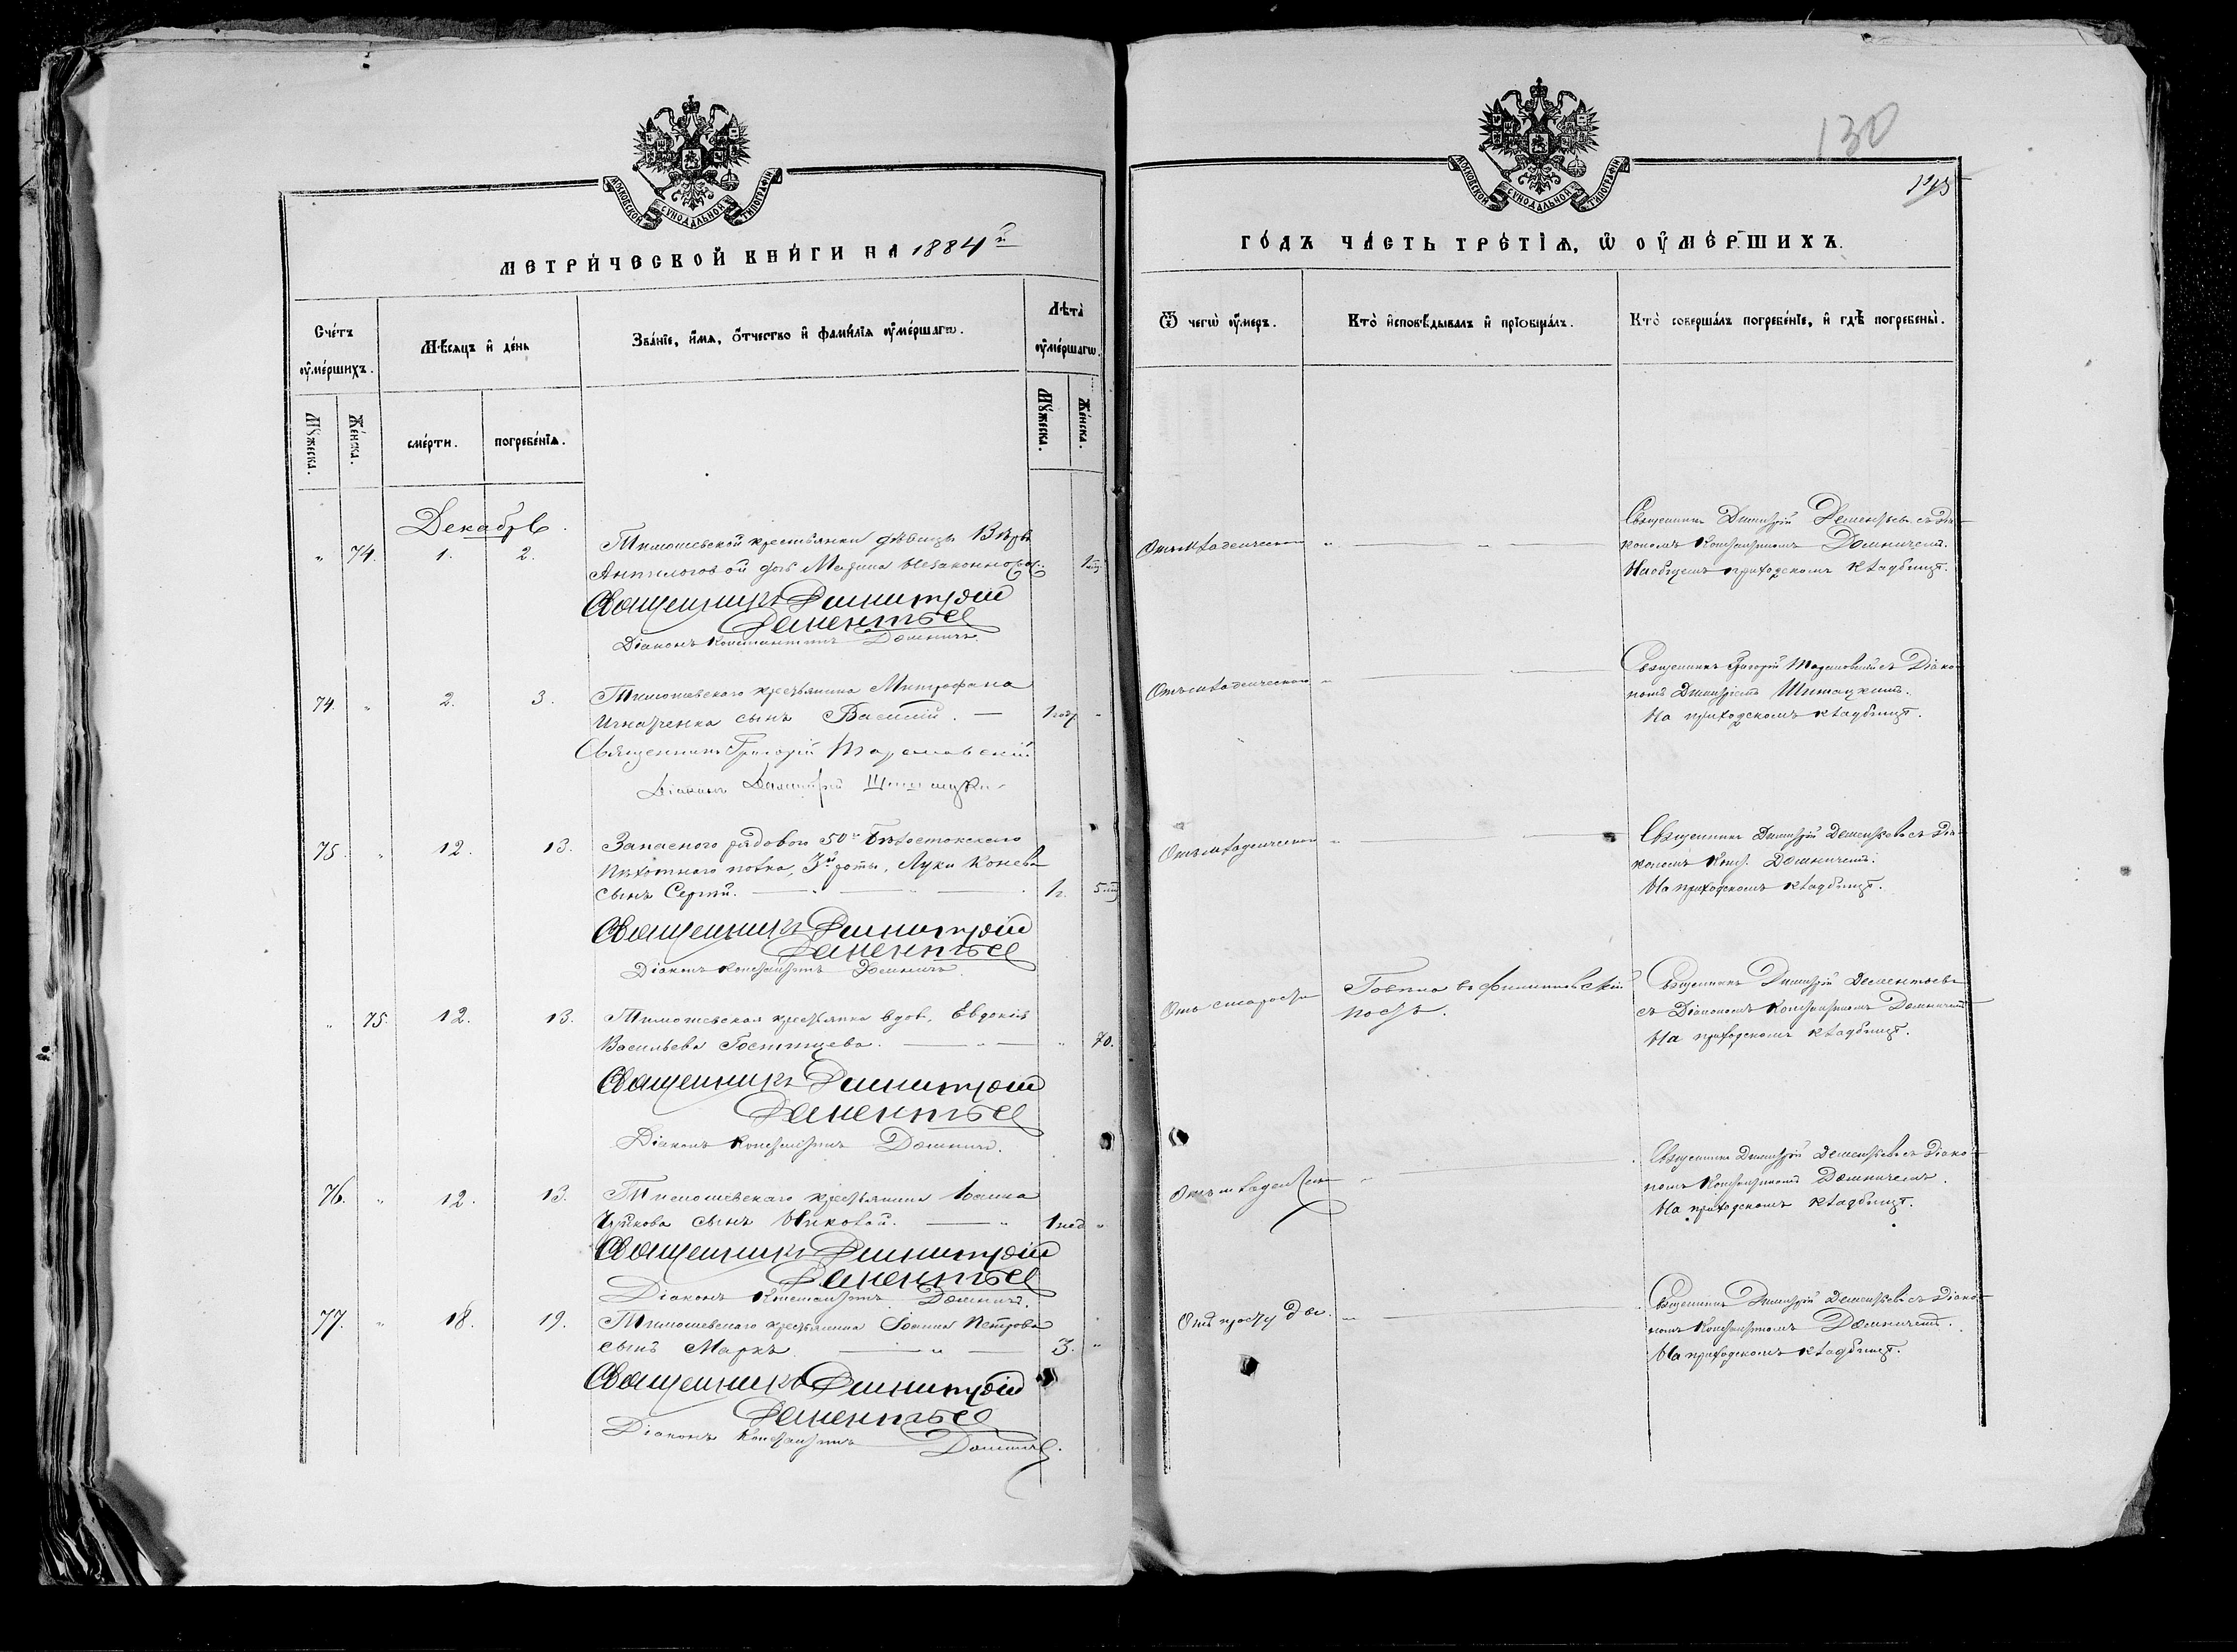 МОСКОВСКОЙ СУНОДАЛЬНОЙ ТИПОГРАФІИ
МЕТРИ́ЧЕСКОЙ КНИ́ГИ НА 1884й
Сче́тъ ᲂу҆ме́ршихъ.
Мѣ́сяцъ и҆ де́нь
Зва́нїе, и҆́мѧ, ѻ҆́тчество и҆ фами́лїѧ ᲂу҆ме́ршагѡ.
Лѣ́та ᲂу҆ме́ршагѡ.
Мꙋ́жеска.
Же́нска.
сме́рти.
погребе́нїѧ.
Мꙋ́жеска.
Же́нска.
Декабрь.
" 74. 1. 2. Тимошевской крестьянки дѣвицы Вѣры
Анпилоговой дочь Марина незаконнорож.
Священникъ Димитрій
Дементьев
Діаконъ Константинъ Домничъ.
74. " 2. 3. Тимошевскаго крестьянина Митрофана
Игнатенка сынъ Василій. — 1 годъ "
Священникъ Григорій
Діаконъ Димитрій
75. " 12. 13. Запаснаго рядоваго 50го Бѣлостокскаго
Пѣхотнаго полка, 3й роты, Луки Конева
сынъ Сергій. — " — 1 г. 5
Священникъ Димитрій
Дементьев
Діаконъ Константинъ Домничъ.
" 75. 12. 13. Тимошевская крестьянка вдов. Евдокія
Васильева Гостищева. — " — " 70.
Священникъ Димитрій
Дементьев
Діаконъ Константинъ Домничъ.
76. " 12. 13. Тимошевскаго крестьянина Іоанна
Чуйкова сынъ Николай. — " 1 нед. "
Священникъ Димитрій
Дементьев
Діаконъ Константинъ Домничъ.
77. " 18. 19. Тимошевскаго крестьянина Іоанна Петрова
сынъ Маркъ. — " — 3. "
Священникъ Димитрій
Дементьев
Діаконъ Константинъ Домничъ.
130
МОСКОВСКОЙ СУНОДАЛЬНОЙ ТИПОГРАФІИ
ГО́ДЪ ЧА́СТЬ ТРЕ́ТЇѦ, Ѡ҆ ОУ҆МЕ́РШИХЪ.
Ѿ чегѡ̀ ᲂу҆́меръ.
Кто̀ и҆сповѣ́дывалъ и҆ прїѻбща́лъ.
Кто̀ соверша́лъ погребе́нїе, и҆ гдѣ̀ погребены̀.
Отъ младенческой " — " —
Священникъ Димитрій Дементьевъ съ Діа-
кономъ Константиномъ Домничемъ.
На общемъ приходскомъ кладбищѣ.
Отъ младенческой " —
Священникъ Григорій съ Діако-
номъ Димитріемъ
На приходскомъ кладбищѣ.
Отъ младенческой " —
Священникъ Димитрій Дементьевъ съ Діа-
кономъ Конст. Домничемъ.
На приходскомъ кладбищѣ.
Отъ старости
Говѣла въ Филипповскій
постъ.
Священникъ Димитрій Дементьевъ
съ Діакономъ Константиномъ Домничемъ
На приходскомъ кладбищѣ.
Священникъ Димитрій Дементьевъ съ Діако-
номъ Константиномъ Домничемъ.
На приходскомъ кладбищѣ.
Отъ простуды. " —
Священникъ Димитрій Дементьевъ съ Діако-
номъ Константиномъ Домничемъ.
На приходскомъ кладбищѣ.